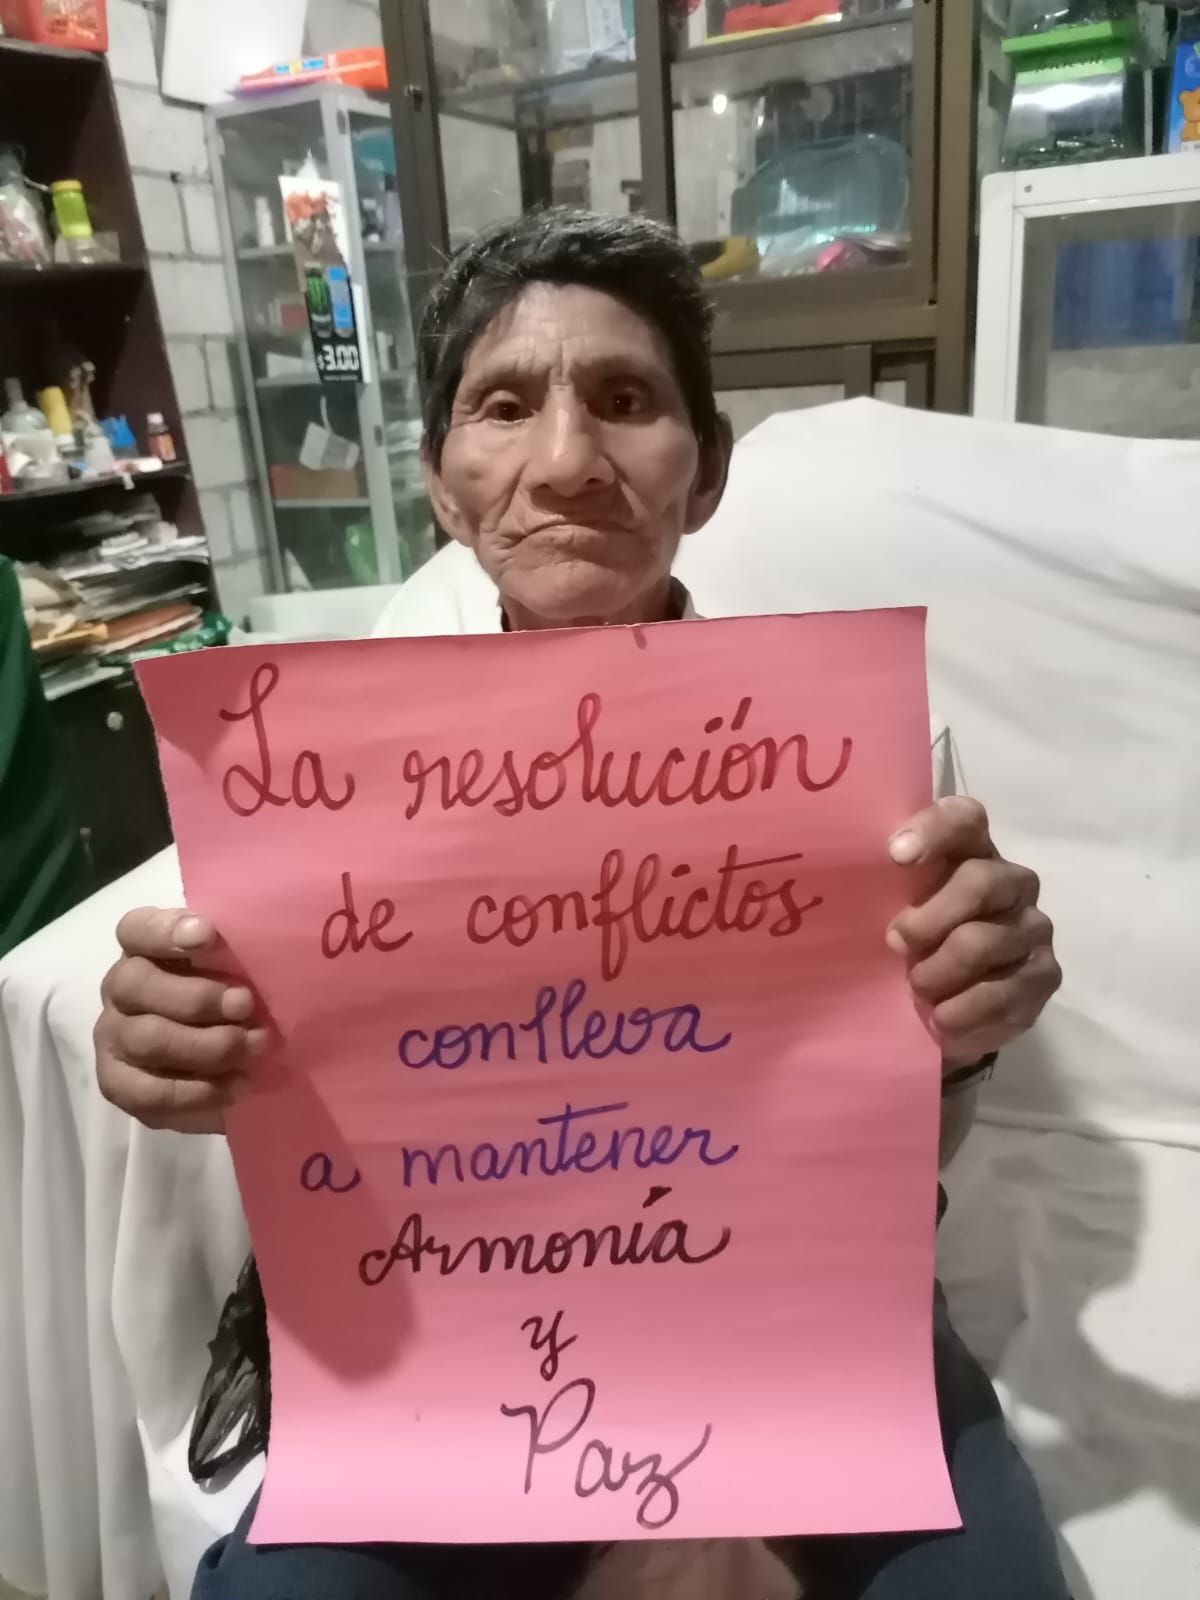 $3.00
La resolución
de conflictos
conlleva
a mantener
Armonía
y
Paz